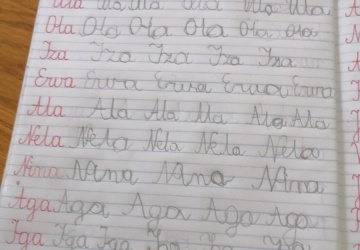 Ula Ula Ula Ula Ula Ula
Ola Ola Ola Ola Ola Ola
Iza Iza Iza Iza Iza
Ewa Ewa Ewa Ewa Ewa
Ala Ala Ala Ala Ala Ala
Nela Nela Nela Nela Nela
Nina Nina Nina Nina
Aga Aga Aga Aga Aga
Iga Iga Iga Iga Iga